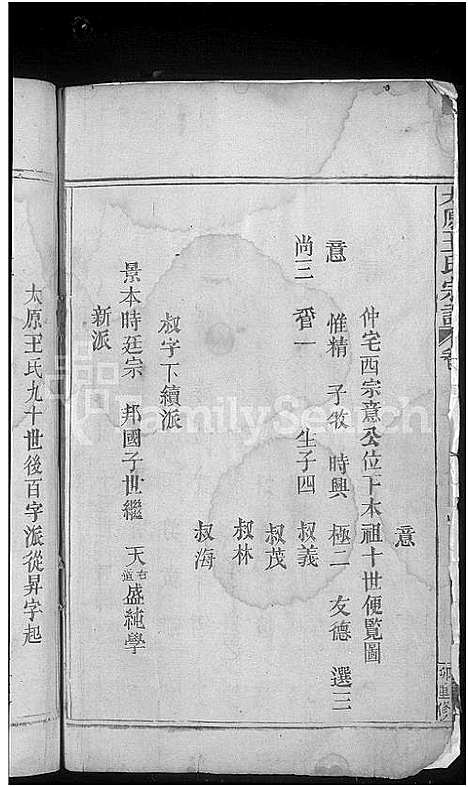 太原王氏宗譜
仲宅西宗意公位下本祖十世便覽圖
意
意 惟精 子牧 時興 極二 友德 選三
尚三 晉一 生子四 叔義
叔茂
叔林
叔海
叔字下續派
景本時廷宗 邦國子世繼 天右盛純學
新派
太原王氏九十世後百字派從昇字起
FamilySearch